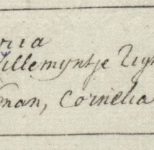 ria
Willemyntje
nan, Cornelia